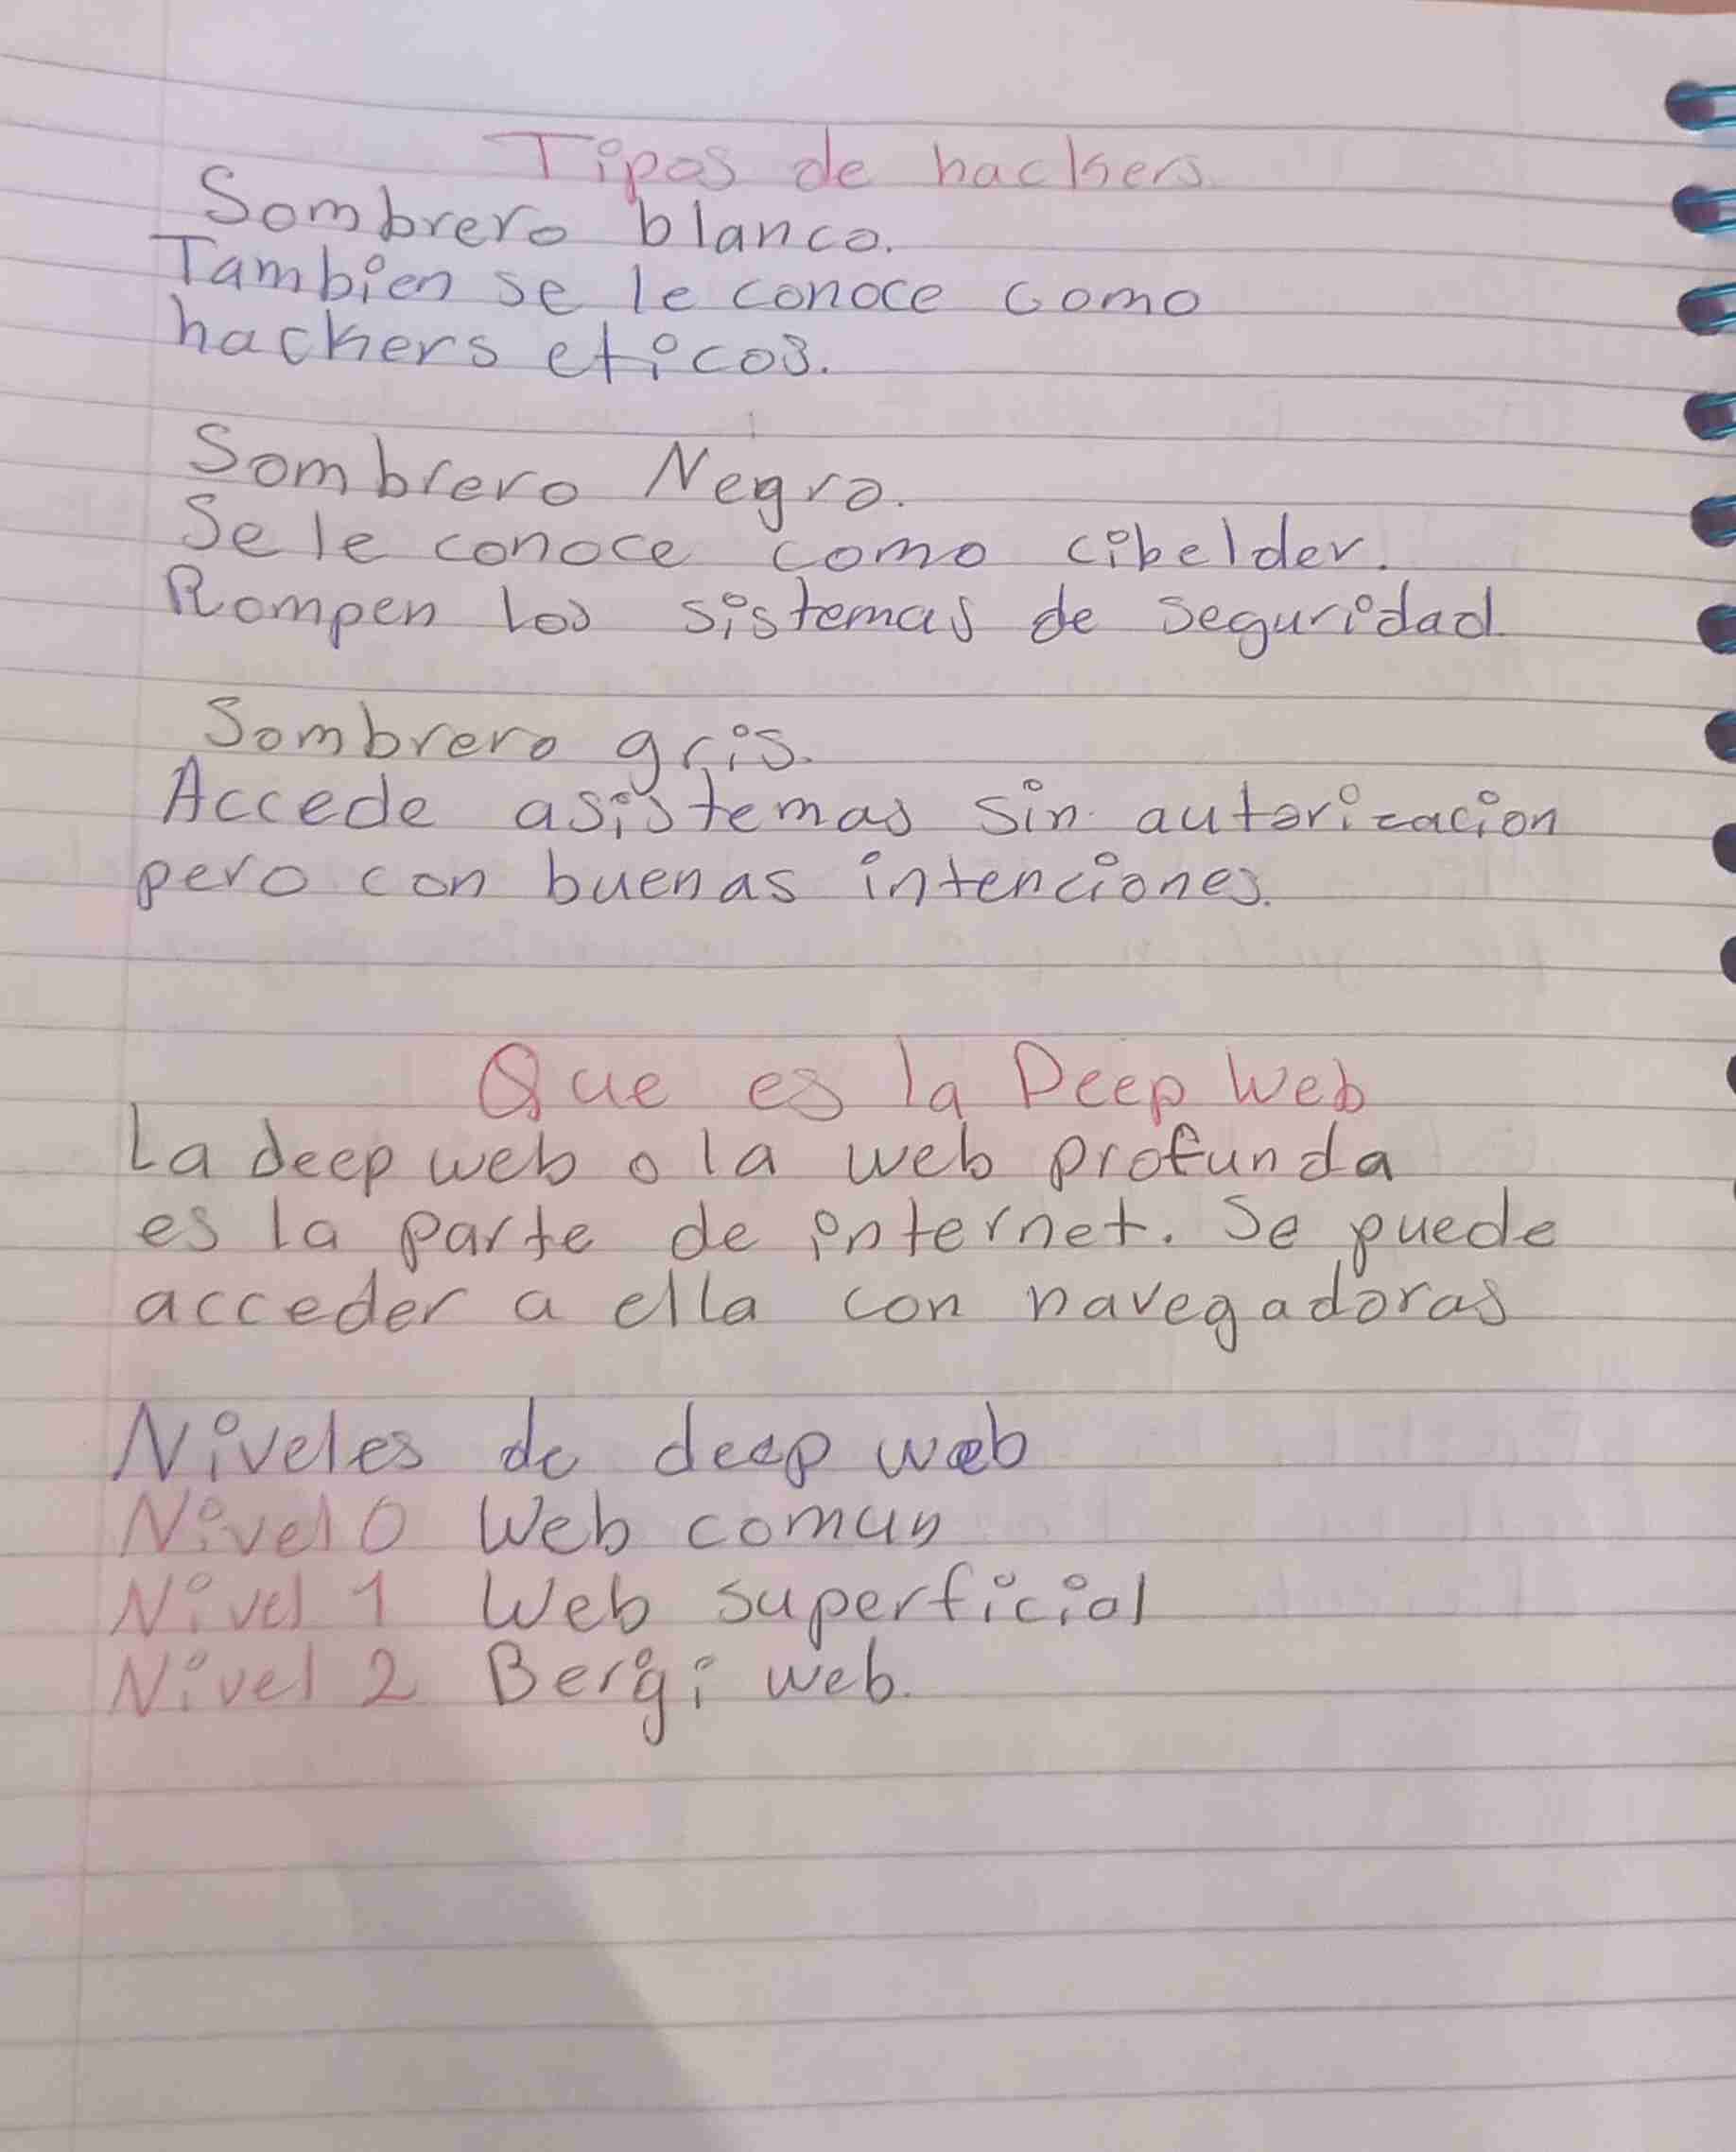 Tipos de hackers
Sombrero blanco.
Tambien se le conoce como
hackers eticos.
Sombrero Negro.
Se le conoce como cibelder.
Rompen los sistemas de seguridad
Sombrero gris.
Accede asistemas sin autorizacion
pero con buenas intenciones.
Que es la Deep Web
La deep web o la web profunda
es la parte de internet. Se puede
acceder a ella con navegadoras
Niveles de deep web
Nivel 0 Web comun
Nivel 1 Web superficial
Nivel 2 Bergi web.